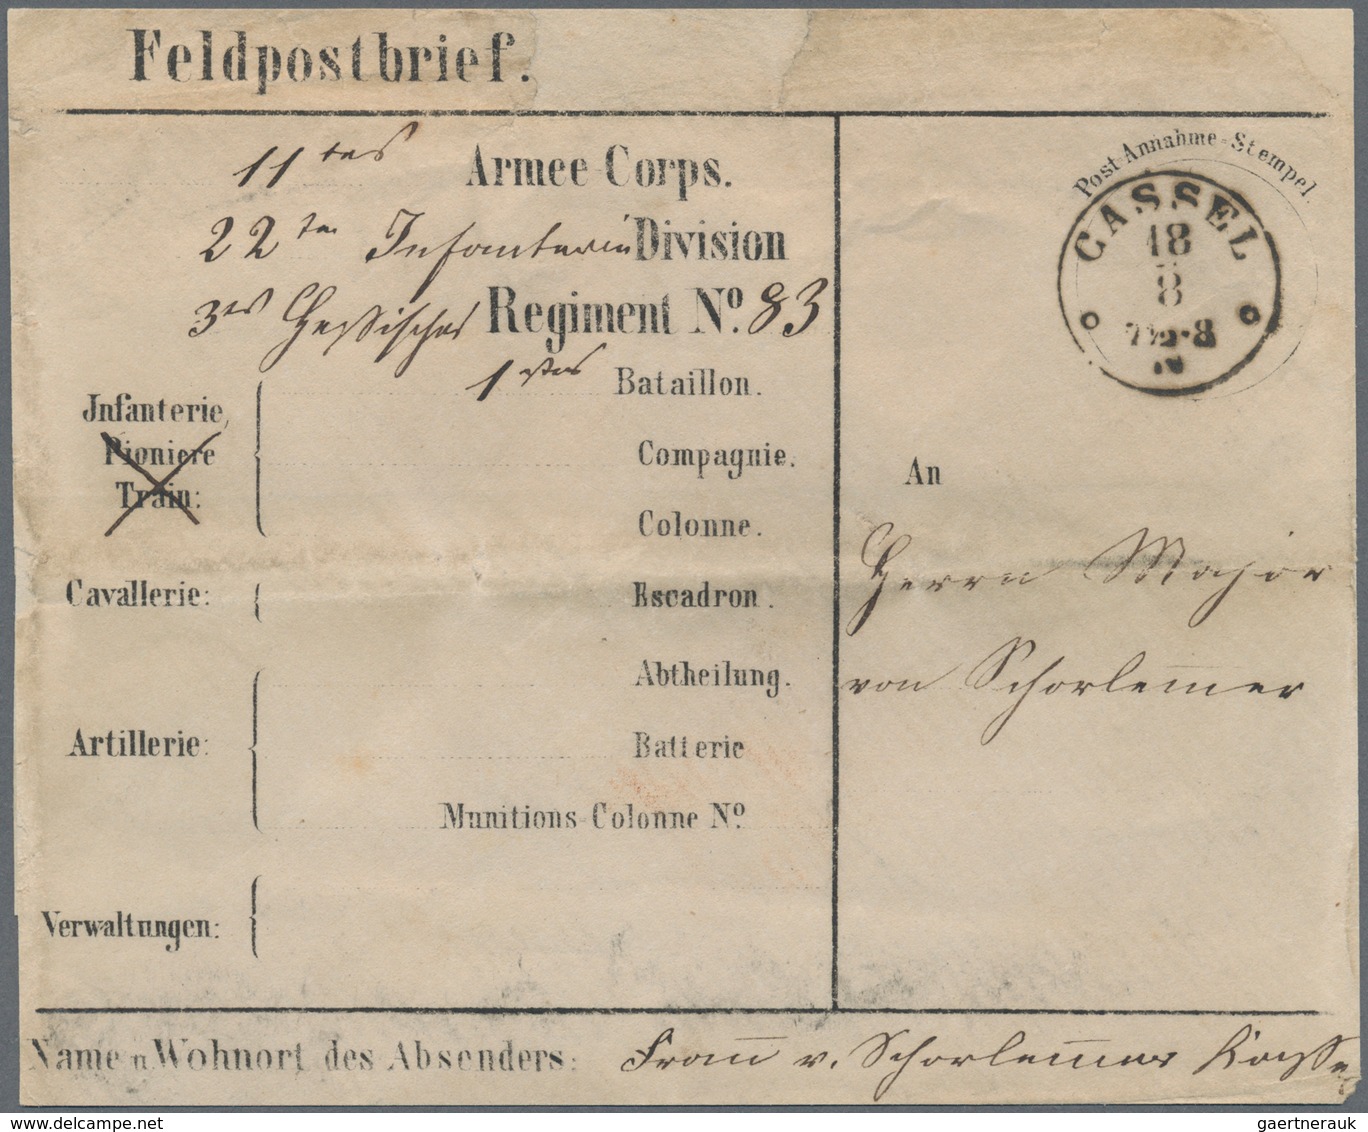 Feldpostbrief.
11tes Armee Corps.
22te Infanterie Division
3tes Hessisches Regiment No. 83
1stes Bataillon.
Infanterie,
Pioniere
Train:
Compagnie.
Colonne.
Cavallerie: Escadron.
Abtheilung.
Artillerie: Batterie
Munitions-Colonne No.
Verwaltungen:
Post-Annahme-Stempel.
CASSEL
18
8
7½-8
N
An
Herrn Major
von Schorlemer
Name u Wohnort des Absenders: Frau v. Schorlemer
gaertnerauk / delcampe.net